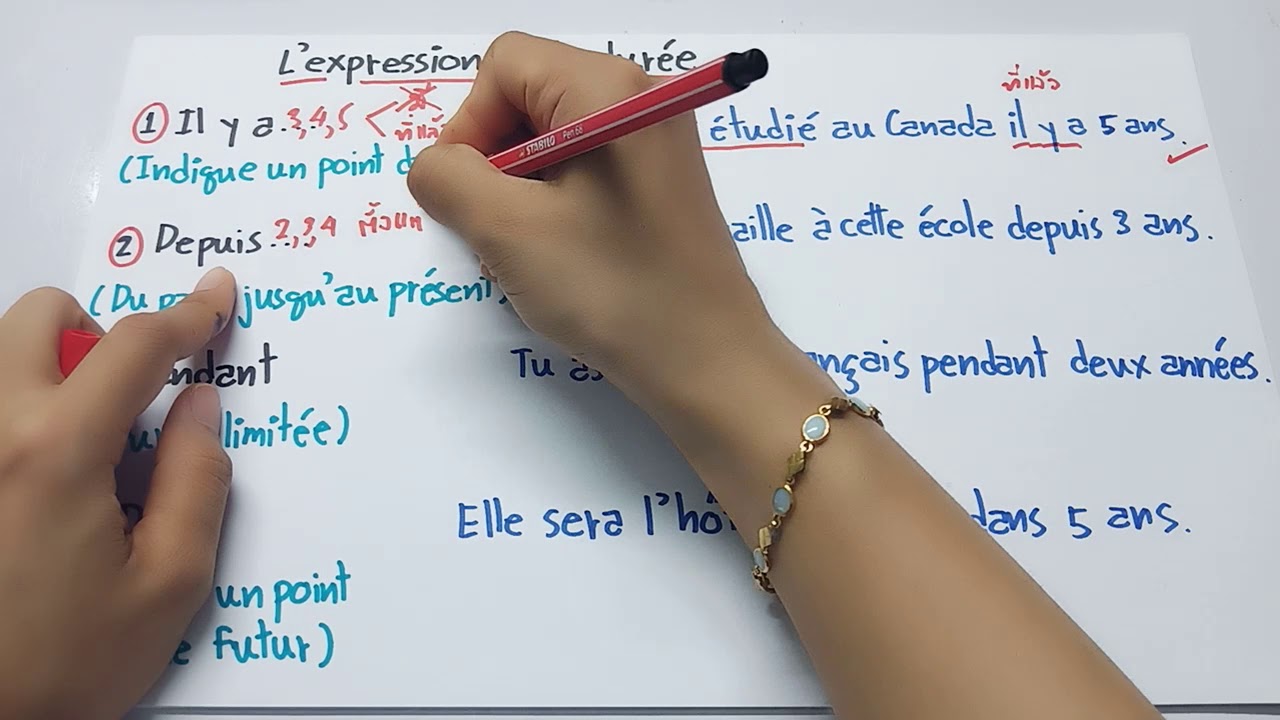 L'expression durée
① Il y a 3, 4, 5 étudié au Canada il y a 5 ans.
ที่แล้ว
(Indique un point
② Depuis 2, 3, 4 aille à cette école depuis 3 ans.
(Du jusqu'au présent
ndant Tu nçais pendant deux années.
limitée)
Elle sera l'hô dans 5 ans.
un point
futur)
STABILO Pen 68